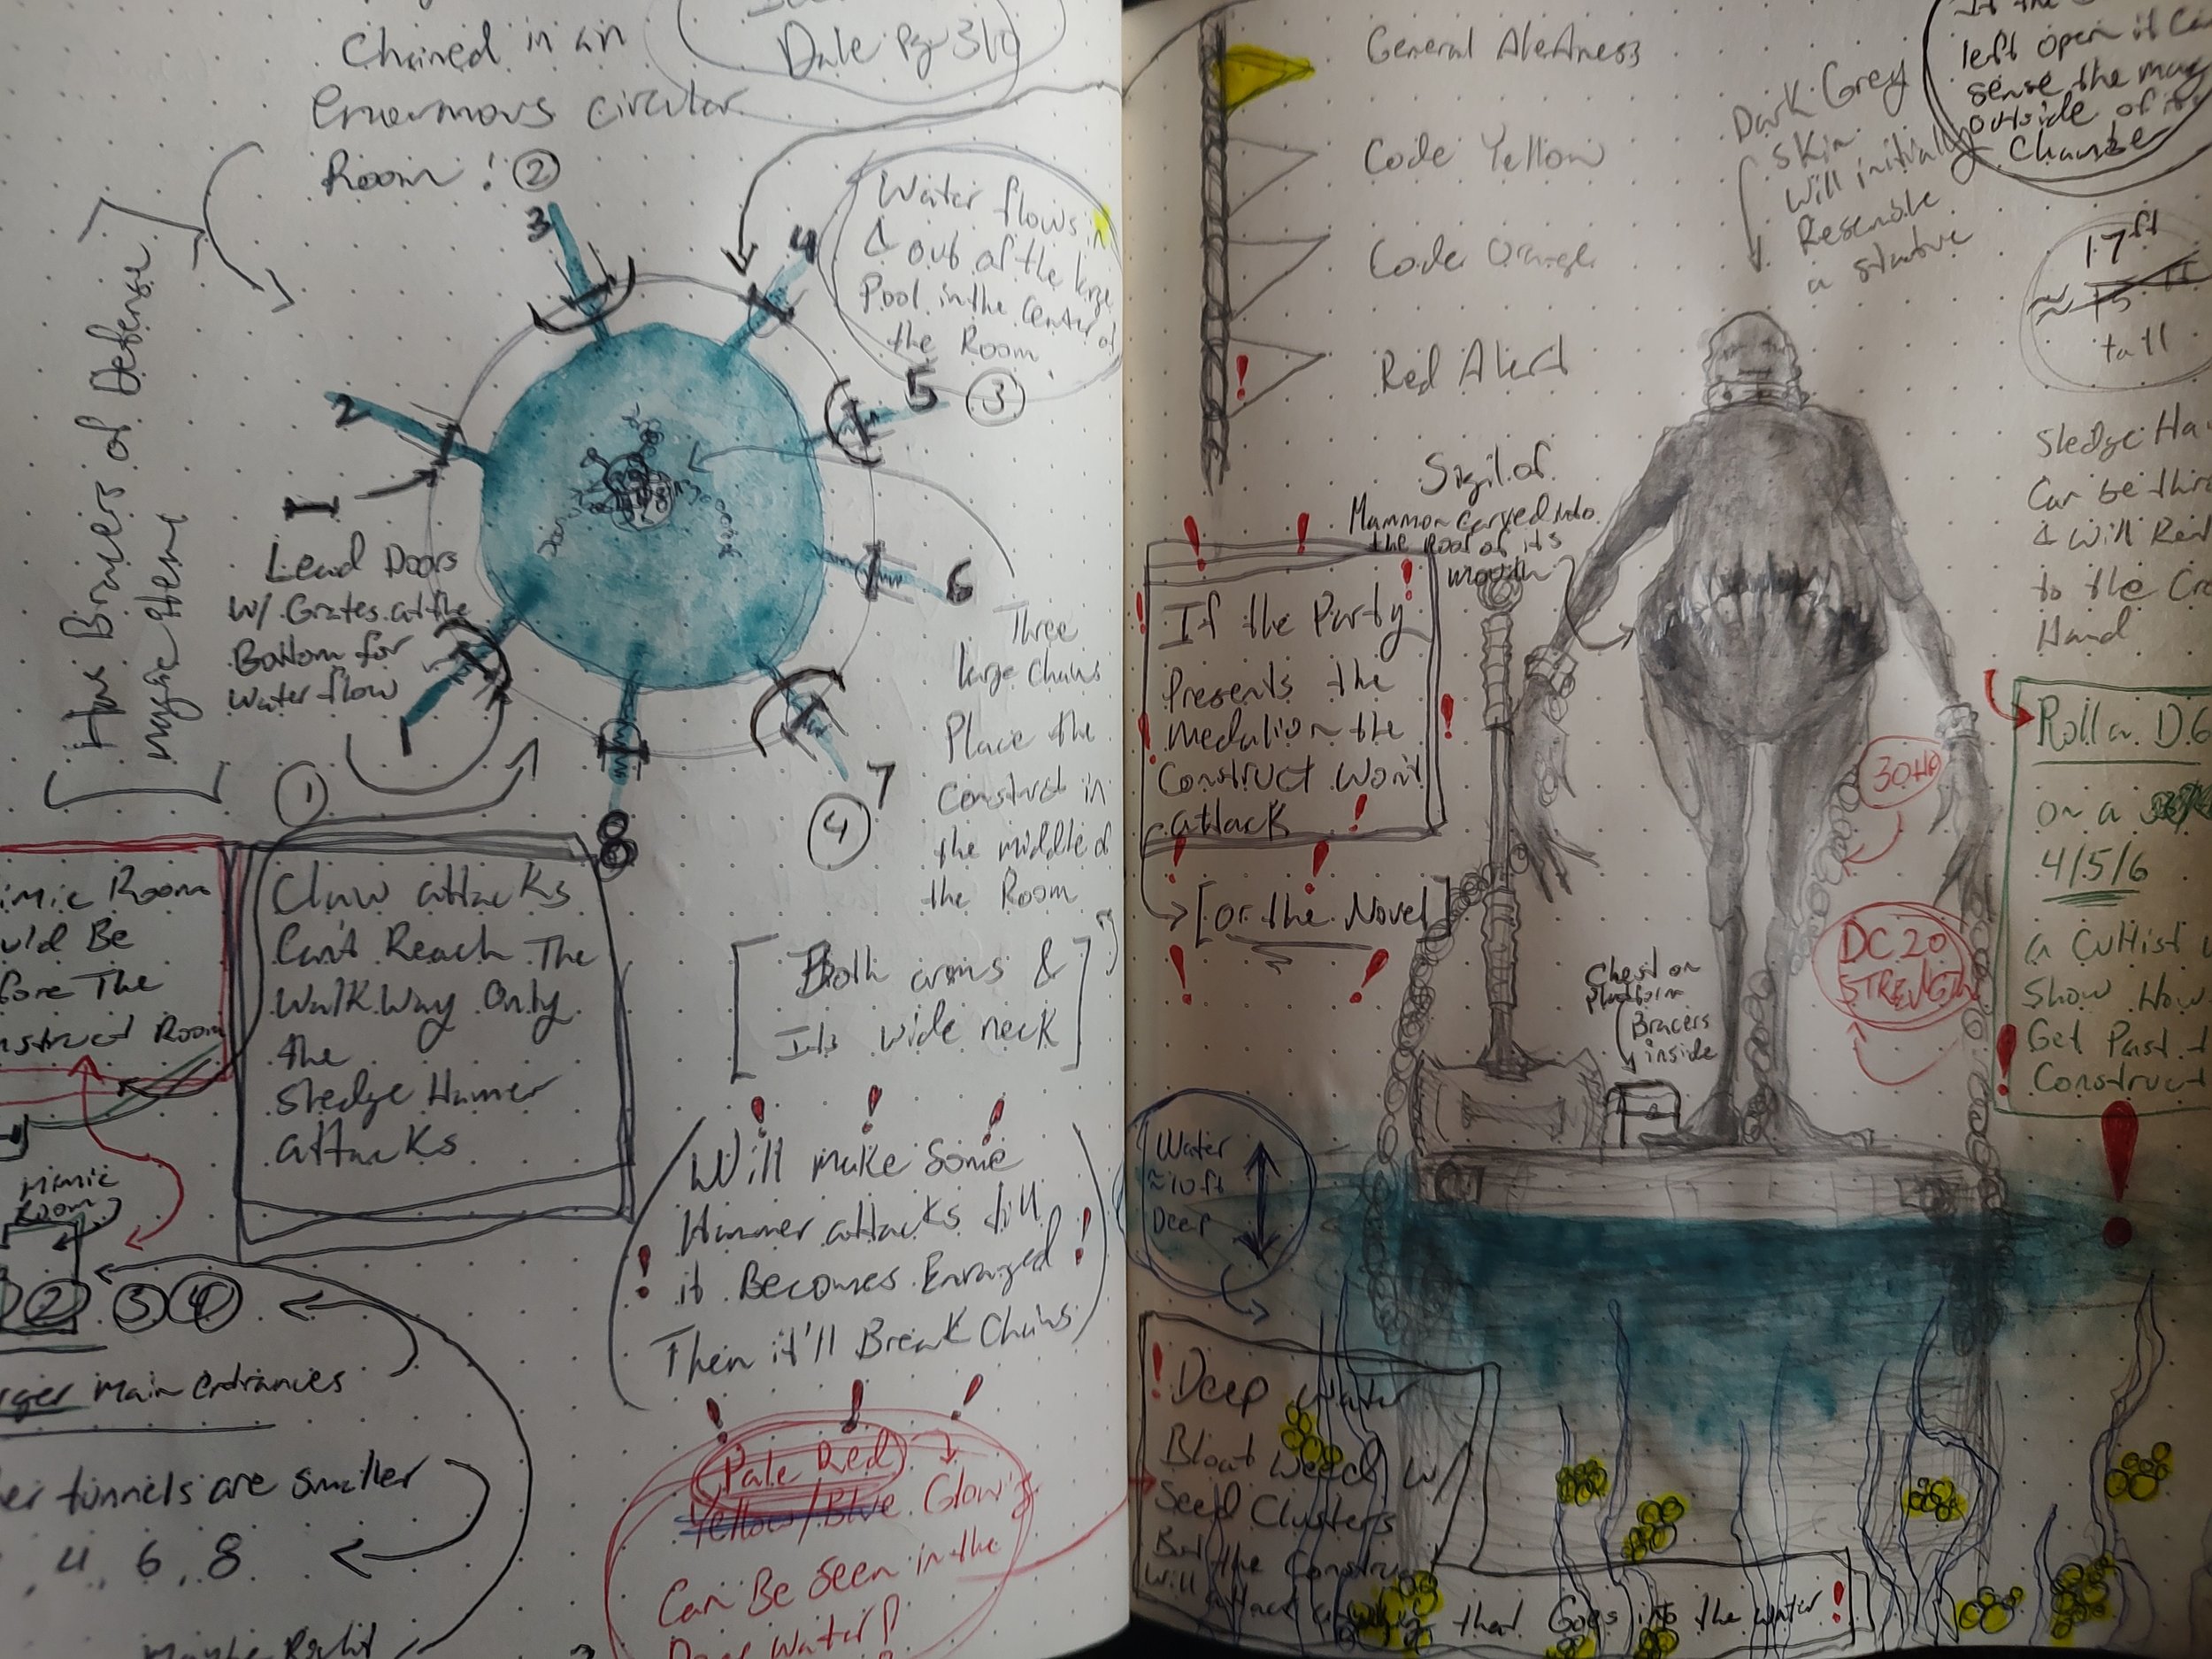 Chained in an
Enormous circular
Room! ②
Dale Pg 310
Has Bracers of Defense
magic item
Water flows in
& out of the large
Pool in the center of
the Room
③
1
2
3
4
5
6
7
8
Lead Doors
w/ Grates at the
Bottom for
water flow
①
④
Three
large chains
Place the
Construct in
the middle of
the Room
[Both arms &
Its wide neck]
Mimic Room
Before The
Construct Room
Claw attacks
Can't Reach The
Walkway Only
the
Sledge Hamer
attacks
Mimic
Room
② ③ ④
main entrances
tunnels are smaller
4, 6, 8
Maybe Right
Will make Some
Hammer attacks till
it Becomes Enraged
Then it'll Break Chains
Pale Red
Yellow/Blue Glowing
Can Be Seen in the
Deep Water!
General Alertness
Code Yellow
Code Orange
! Red Alert
Dark Grey
skin
Will initially
Resemble
a statue
left open it can
sense the magic
outside of its
Chamber
17ft
≈ 15 ft
tall
Sigil of
Mammon carved into
the roof of its
mouth
If the Party
Presents the
Medalion the
Construct Won't
attack
[or the Novel]
Sledge
Can be
& will
to the
Hand
Roll a D6
on a
4/5/6
a Cultist
Show How
Get Past
Construct
30HP
DC 20
STRENGTH
Chest on
platform
Bracers
inside
Water
≈10ft
Deep
! Deep water
Bloat Weed w/
Seed Clusters
But the Construct
will attack anything that Goes into the water!